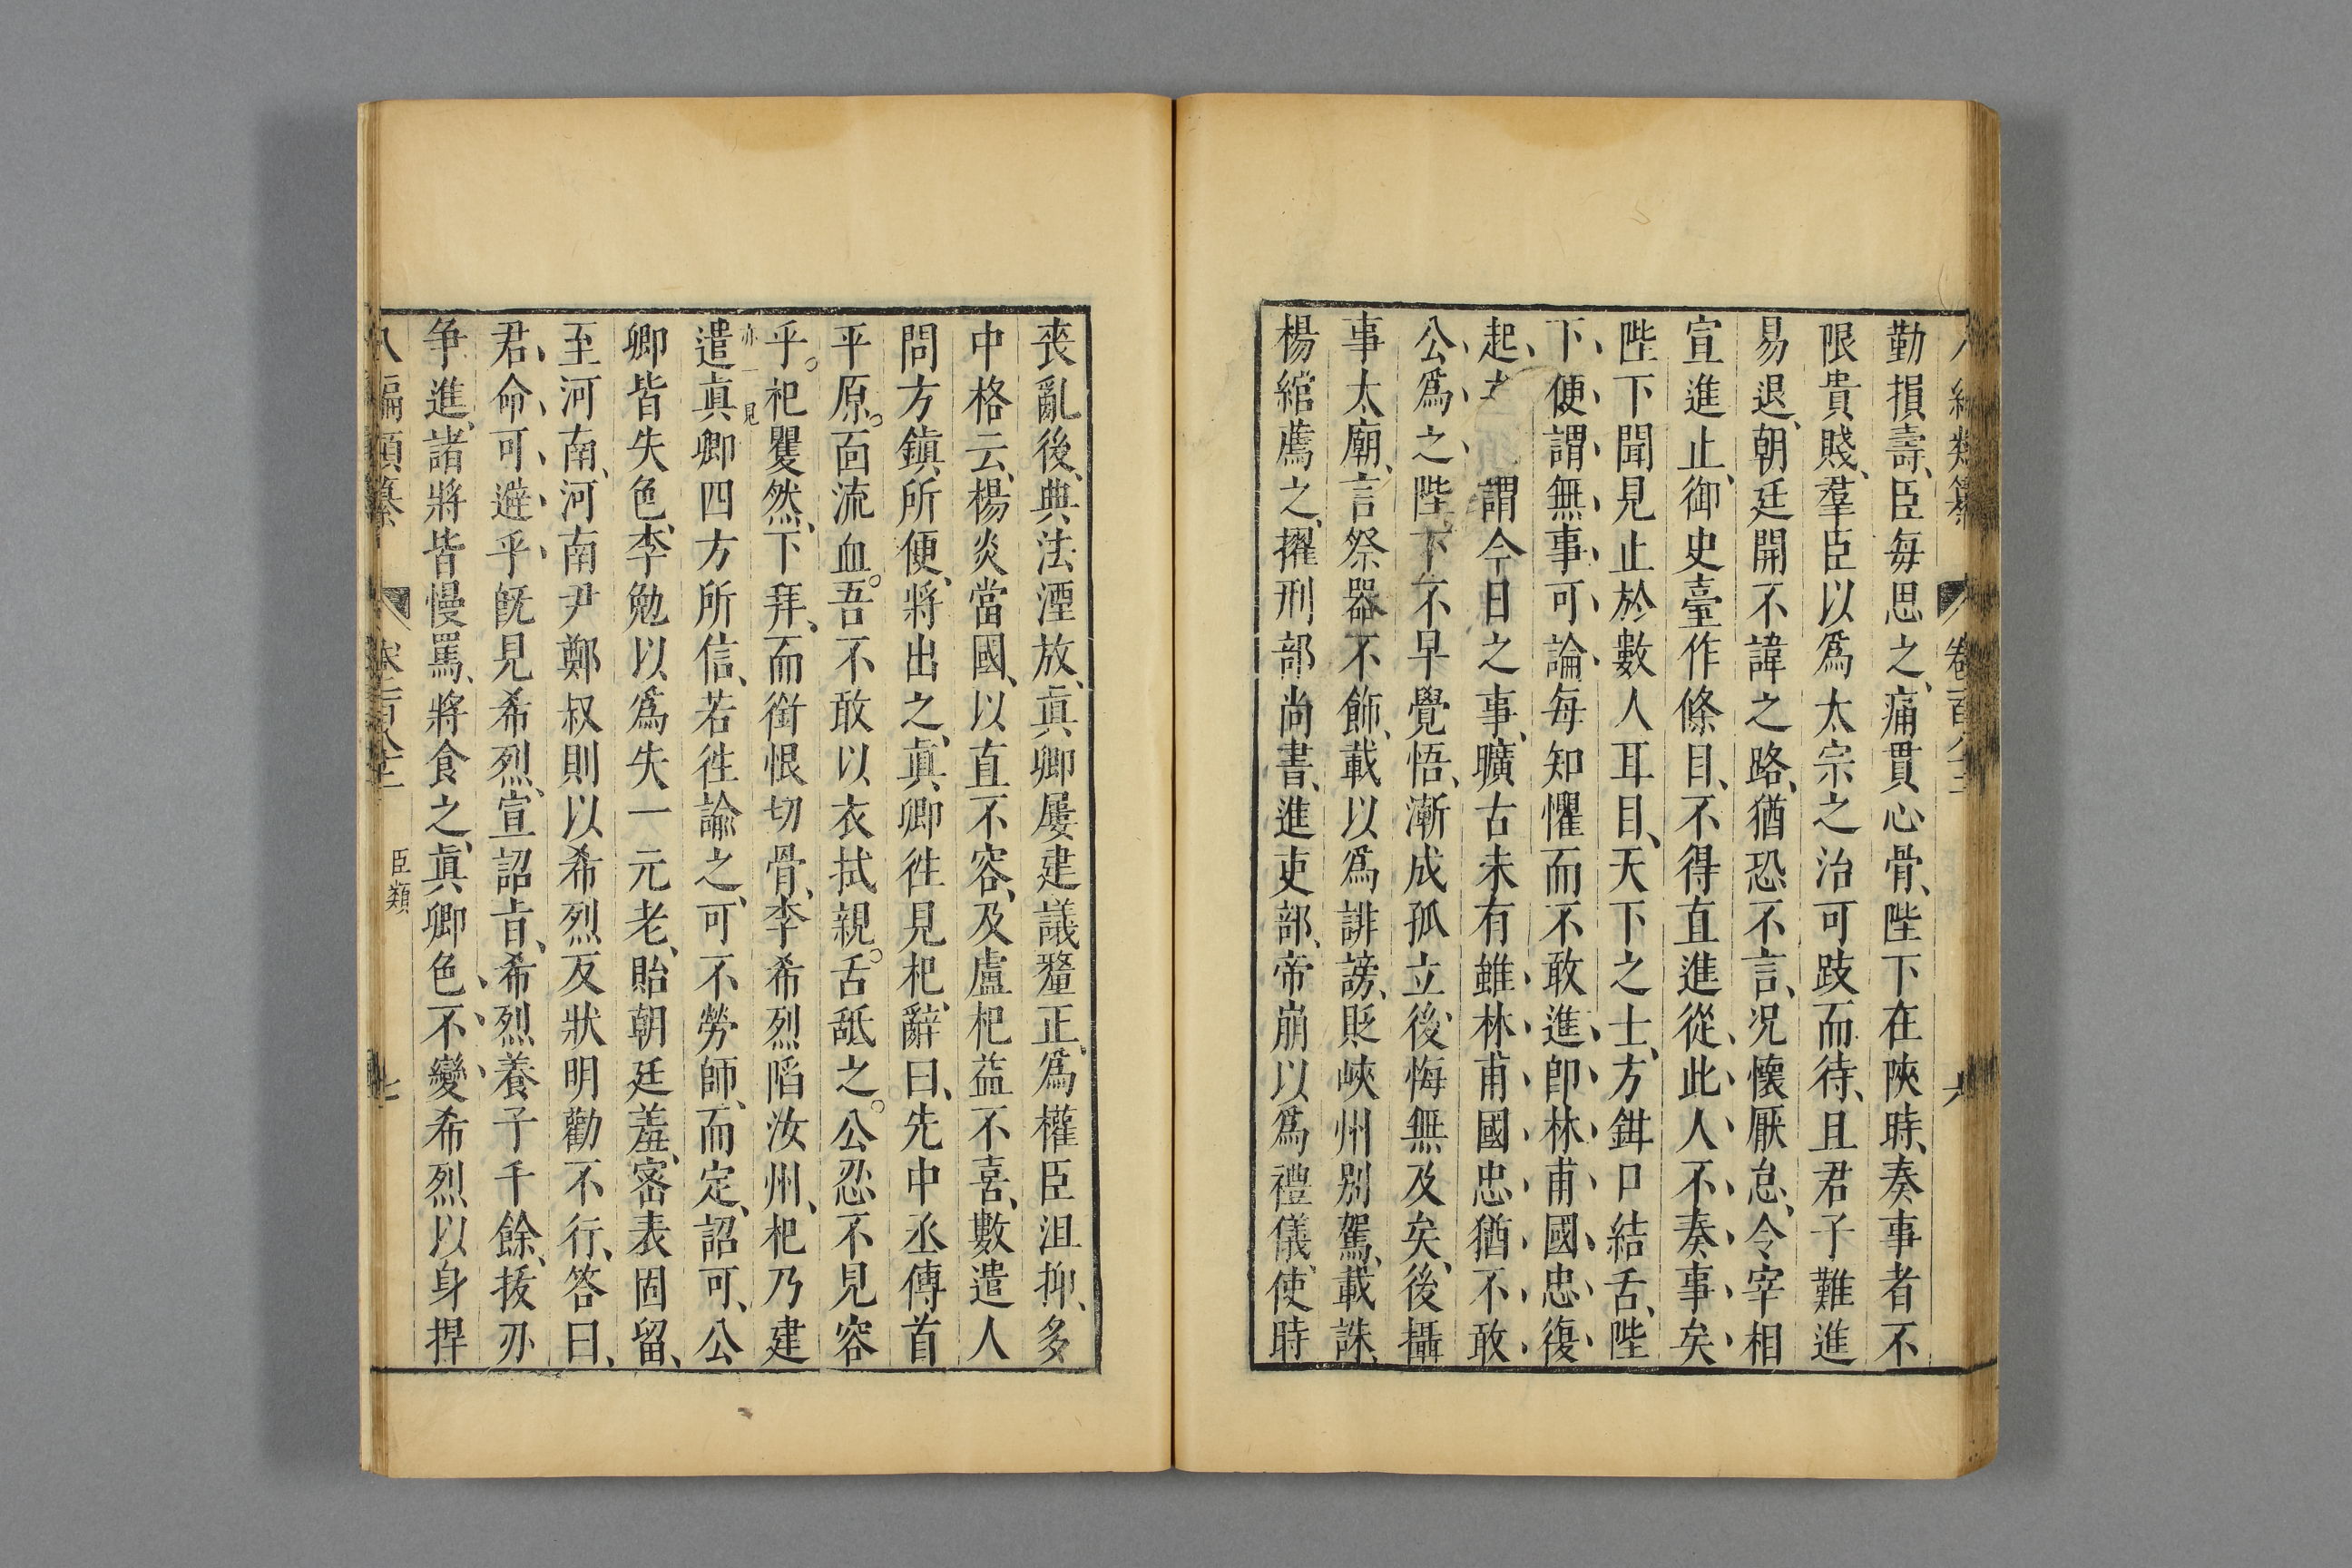 勤損壽、臣每思之、痛貫心骨、陛下在陝時、奏事者不
限貴賤、羣臣以爲太宗之治可跂而待、且君子難進
易退、朝廷開不諱之路、猶恐不言、况懷厭怠、令宰相
宣進止、御史臺作條目、不得直進、從此人不奏事矣、
陛下聞見止於數人耳目、天下之士、方鉗口結舌、陛
下、便謂無事可論、每知懼而不敢進、卽林甫國忠復
起、謂今日之事、曠古未有、雖林甫國忠猶不敢
公、爲之、陛下不早覺悟、漸成孤立、後悔無及矣、後攝
事太廟、言祭器不飾、載以爲誹謗、貶峽州別駕、載誅、
楊綰薦之、擢刑部尚書、進吏部、帝崩以爲禮儀、使時
喪亂後、典法湮放、眞卿屢建議釐正、爲權臣沮抑、多
中格云、楊炎當國、以直不容、及盧杞益不喜、數遣人
問方鎮所便、將出之、眞卿徃見杞、辭曰、先中丞傳首
平原。面流血。吾不敢以衣拭親。舌舐之。公忍不見容
乎。杞矍然、下拜、而銜恨切骨、李希烈陷汝州、杞乃建
亦一見
遣眞卿四方所信、若徃諭之、可不勞師、而定、詔可、公
卿皆失色、李勉以爲失一元老、貽朝廷羞、密表固留、
至河南、河南尹鄭叔則以希烈反狀明勸不行、答曰、
君、命可避乎、旣見希烈、宣詔㫖、希烈養子千餘、拔刃
争進、諸將皆慢罵、將食之、眞卿色不變、希烈以身捍
八編類纂
臣類
七